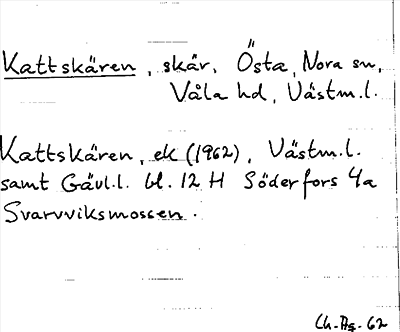 Kattskären, skär, Östa, Nora sn,
Våla hd, Västm.l.
Kattskären, ek (1962), Västm.l.
samt Gävl.l. bl. 12 H Söderfors 4a
Svarvviksmossen.
Ch. Ag. 62